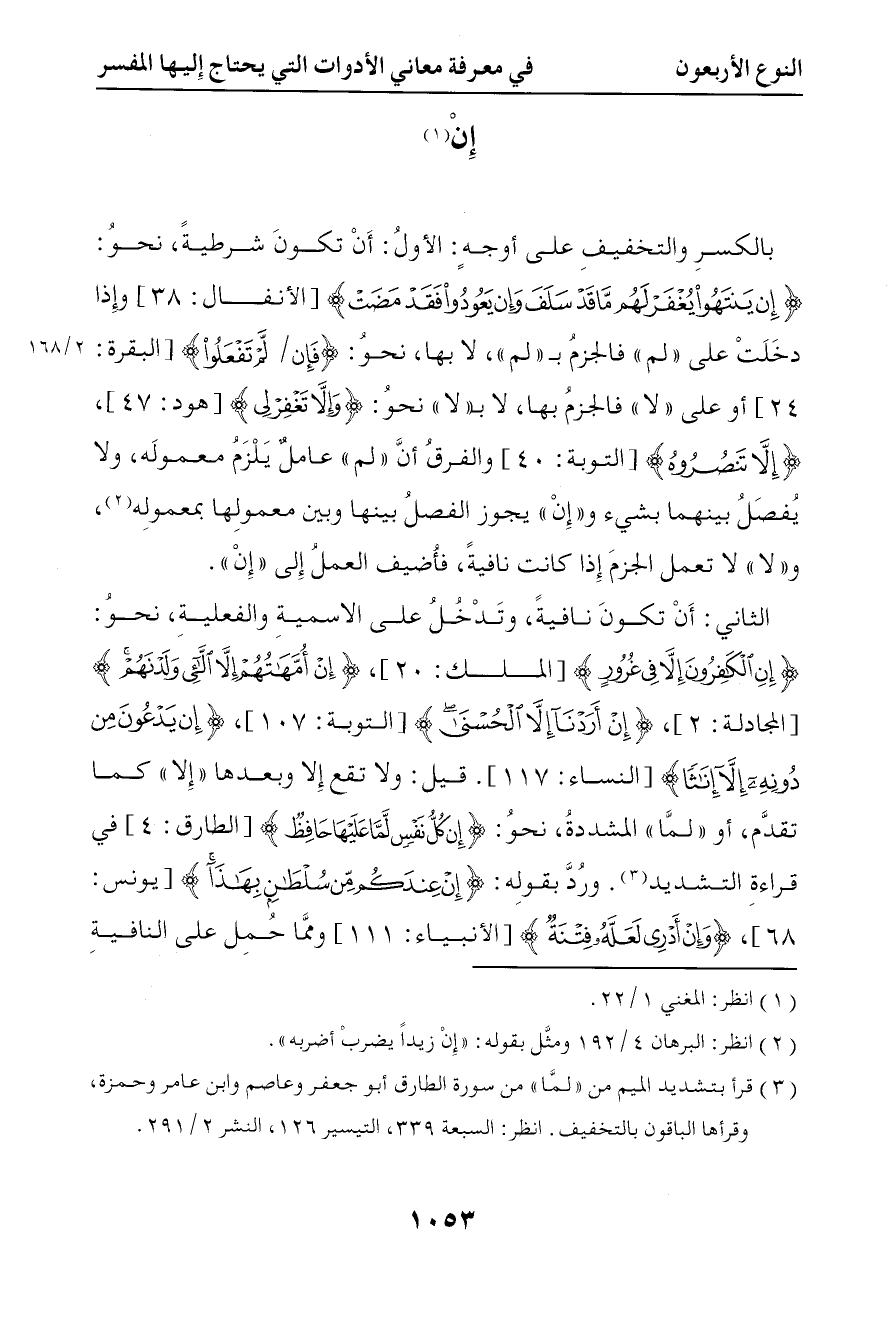 النوع الأربعون في معرفة معاني الأدوات التي يحتاج إليها المفسر
إِنْ(١)
بالكسرِ والتخفيفِ على أوجهٍ: الأولُ: أنْ تكونَ شرطيةً، نحوُ:
﴿إِن يَنتَهُوا۟ يُغْفَرْ لَهُم مَّا قَدْ سَلَفَ وَإِن يَعُودُوا۟ فَقَدْ مَضَتْ﴾ [الأنفال: ٣٨] وإذا
دخَلَتْ على «لم» فالجزمُ بـ«لم»، لا بها، نحوُ: ﴿فَإِن/ لَّمْ تَفْعَلُوا۟﴾ [البقرة: ١٦٨/٢
٢٤] أو على «لا» فالجزمُ بها، لا بـ«لا» نحوُ: ﴿وَإِلَّا تَغْفِرْ لِى﴾ [هود: ٤٧]،
﴿إِلَّا تَنصُرُوهُ﴾ [التوبة: ٤٠] والفرقُ أنَّ «لم» عاملٌ يَلْزَمُ معمولَه، ولا
يُفصَلُ بينهما بشيء و«إنْ» يجوز الفصلُ بينها وبين معمولها بمعموله(٢)،
و«لا» لا تعمل الجزمَ إذا كانت نافيةً، فأُضيف العملُ إلى «إنْ».
الثاني: أنْ تكونَ نافيةً، وتَدْخُلُ على الاسمية والفعلية، نحوُ:
﴿إِنِ ٱلْكَٰفِرُونَ إِلَّا فِى غُرُورٍ﴾ [الملك: ٢٠]، ﴿إِنْ أُمَّهَٰتُهُمْ إِلَّا ٱلَّٰٓـِٔى وَلَدْنَهُمْ ۚ﴾
[المجادلة: ٢]، ﴿إِنْ أَرَدْنَآ إِلَّا ٱلْحُسْنَىٰ ۖ﴾ [التوبة: ١٠٧]، ﴿إِن يَدْعُونَ مِن
دُونِهِۦٓ إِلَّآ إِنَٰثًا﴾ [النساء: ١١٧]. قيل: ولا تقع إلا وبعدها «إلا» كما
تقدَّم، أو «لمَّا» المشددةُ، نحوُ: ﴿إِن كُلُّ نَفْسٍ لَّمَّا عَلَيْهَا حَافِظٌ﴾ [الطارق: ٤] في
قراءة التشديد(٣). ورُدَّ بقوله: ﴿إِنْ عِندَكُم مِّن سُلْطَٰنٍۭ بِهَٰذَآ ۚ﴾ [يونس:
٦٨]، ﴿وَإِنْ أَدْرِى لَعَلَّهُۥ فِتْنَةٌ﴾ [الأنبياء: ١١١] وممَّا حُمل على النافية
(١) انظر: المغني ٢٢/١.
(٢) انظر: البرهان ١٩٢/٤ ومثَّل بقوله: «إنْ زيداً يضربْ أضربه».
(٣) قرأ بتشديد الميم من «لمَّا» من سورة الطارق أبو جعفر وعاصم وابن عامر وحمزة،
وقرأها الباقون بالتخفيف. انظر: السبعة ٣٣٩، التيسير ١٢٦، النشر ٢٩١/٢.
١٠٥٣